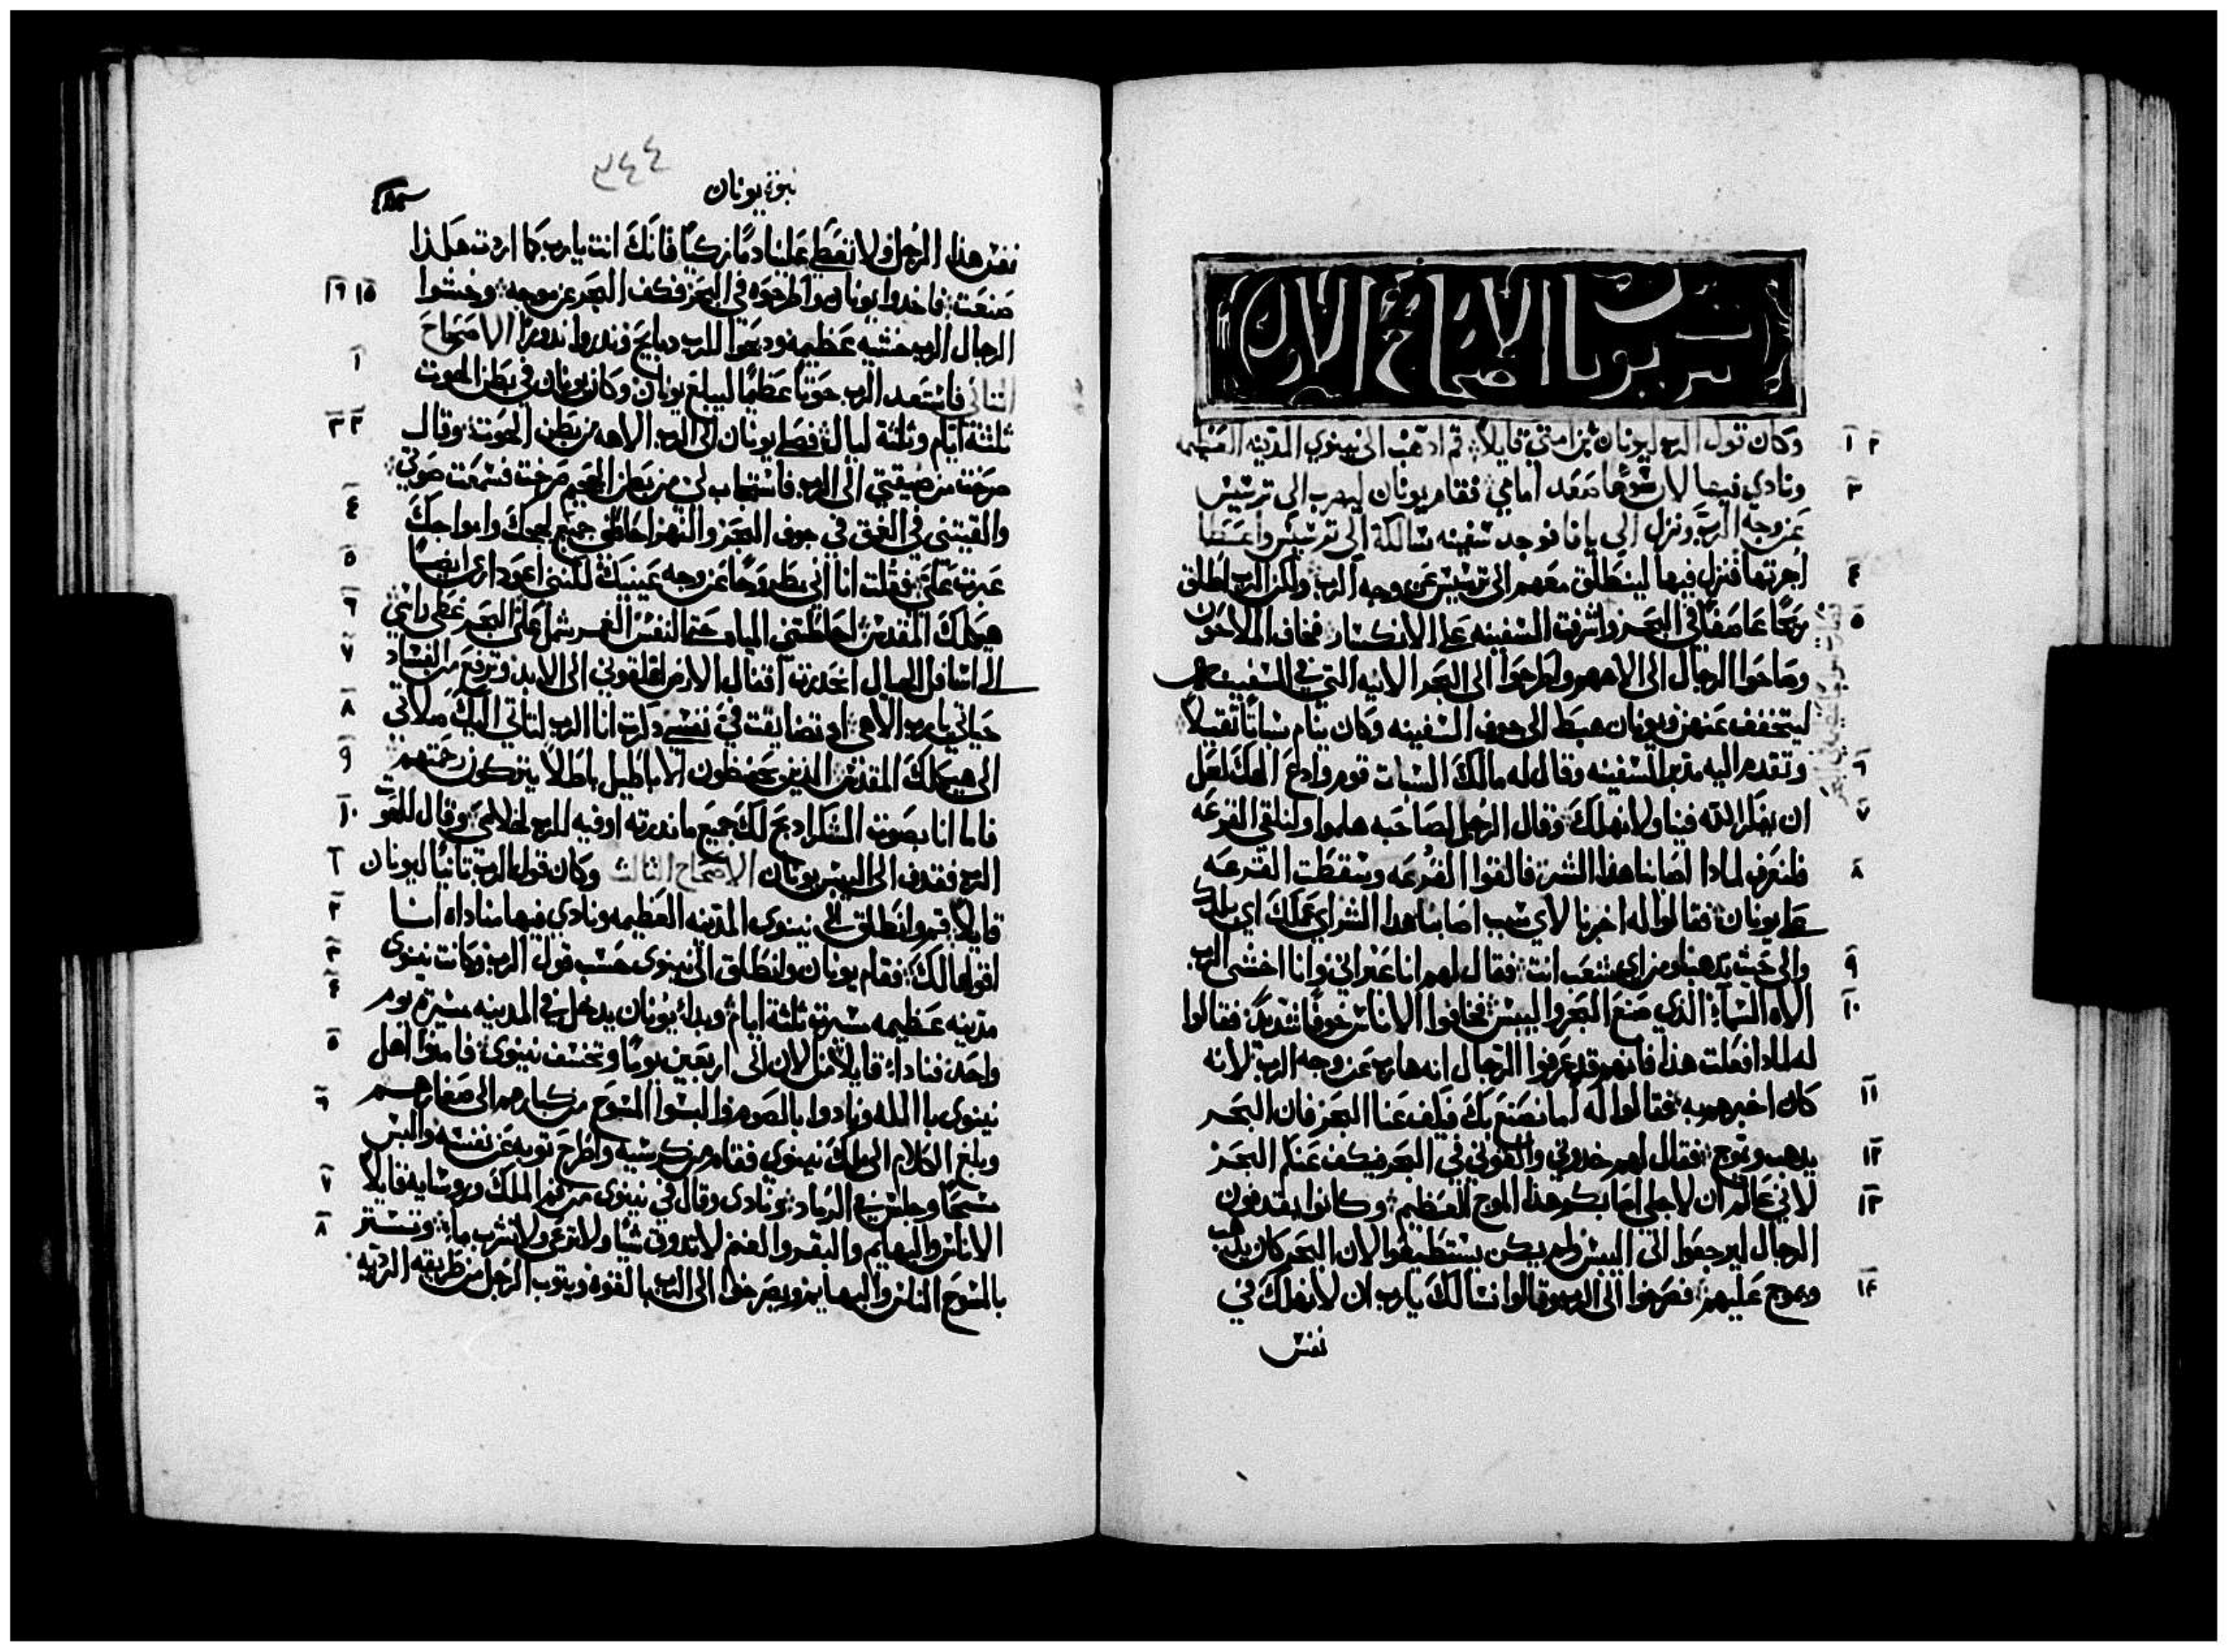 يونان الاصحاح الاول
وكان قول الرب ليونان بن امتي قايلا قم ادهب الى نينوي المدينه العظيمه
ونادي فيها لان شرها صعد امامي فقام يونان ليهرب الى ترسيس
عن وجه الرب ونزل الى يافا فوجد سفينه سالكة الى ترسيس واعطا
اجرتها فنزل فيها لينطلق معهم الى ترسيس عن وجه الرب ولكن الرب اطلق
ريحا عاصفا في البحر واشرفت السفينه على الانكسار فخاف الملاحون
وصاحوا الرجال الى الاههم واطرحوا الى البحر الانيه التي في السفينه
ليتخفف عنهم ويونان هبط الى جوف السفينه وكان ينام سباتا تقيلا
وتقدم اليه مدبر السفينه وقال له مالك السبات قوم وادع الهك لعل
ان يفكر الله فينا ولا نهلك وقال الرجل لصاحبه هلموا ولنلقي القرعه
فلنعرف لمادا اصابنا هذا الشر فالقوا القرعه وسقطت القرعه
على يونان فقالوا له اخبرنا لاي سبب اصابنا هدا الشر اي عملك اي بلدك
والى حيث تدهب ومن اي شعب انت فقال لهم انا عبراني وانا اخشى الرب
الاه السماء الذي صنع البحر واليبس فخافوا الاناس خوفا شديدا فقالوا
له لمادا فعلت هذا فانهم قد عرفوا الرجال انه هارب عن وجه الرب لانه
كان اخبرهم به فقالوا له اما نصنع بك فيكف عنا البحر فان البحر
يدهب ويموج فقال لهم خدوني والقوني في البحر فيكف عنكم البحر
لاني عالم ان لاجلي اصابكم هذا الموج العظيم وكانوا يقدفون
الرجال ليرجعوا الى اليبس ولم يكن يستطيعوا لان البحر كان يدهب
ويموج عليهم فصرخوا الى الرب وقالوا نسالك يا رب ان لا نهلك في
نفس
٢٤٤
نبوة يونان
نفس هذا الرجل ولا تعط علينا دما زكيا فانك انت يا رب كما اردت هكذا
صنعت فاخدوا يونان واطرحوه في البحر فكف البحر عن موجه وخشوا
الرجال الرب خشيه عظيمه ودبحوا للرب دبايح وندروا ندورا الاصحاح
التاني فاستعد الرب حوتا عظيما ليبلع يونان وكان يونان في بطن الحوت
ثلثة ايام وثلثة ليال فصلى يونان الى الرب الاهه من بطن الحوت وقال
صرخت من ضيقتي الى الرب فاستجاب لي من بطن الجحيم صرخت فسمعت صوتي
والقيتني في العمق في جوف البحر والنهر احاطني جميع لججك وامواجك
عبرت علي فقلت انا اني مطروحا عن وجه عينيك لكنني اعود ارى ايضا
هيكلك المقدس احاطتني المياه حتى النفس الغمر شمل علي البحر غطى راسي
الى اسافل الجبال انحدرت اقفال الارض اغلقوني الى الابد وترفع من الفساد
حياتي يا رب الاهي اد تضايقت في نفسي دكرت انا الرب لتاتي اليك صلاتي
الى هيكلك المقدس الذين يحفظون الاباطيل باطلا يتركون رحمتهم
فاما انا بصوت الشكر ادبح لك جميع ما ندرته اوفيه للرب لخلاصي وقال للحوت
الرب فقدف الى اليبس يونان الاصحاح الثالث وكان قول الرب تانيا ليونان
قايلا قم وانطلق الى نينوى المدينه العظيمه ونادي فيها مناداه انا
اقولها لك فقام يونان وانطلق الى نينوى حسب قول الرب وكانت نينوى
مدينه عظيمه مسيرة ثلثة ايام وبدا يونان يدخل في المدينه مسيرة يوم
واحد فنادا قايلا من الان الى اربعين يوما وتخسف نينوى فامنوا اهل
نينوى بالله ونادوا بالصوم والبسوا المسوح من كبارهم الى صغارهم
وبلغ الكلام الى ملك نينوي فقام من كرسيه واطرح ثوبه عن نفسه والبس
مسحا وجلس في الرماد ونادى وقال في نينوى من فم الملك وروسايه قايلا
الاناس والبهايم والبقر والغنم لا تدوق شيا ولا ترعى ولا تشرب ماء وتستتر
بالمسوح الناس والبهايم ويصرخوا الى الرب بالقوه ويتوب الرجل من طريقه الرديه